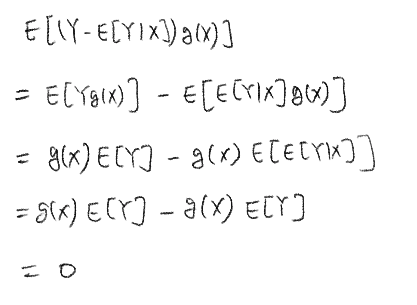 E[(Y-E[Y|X])g(x)]
= E[Yg(x)] - E[E[Y|X]g(x)]
= g(x)E[Y] - g(x)E[E[Y|X]]
= g(x)E[Y] - g(x)E[Y]
= 0